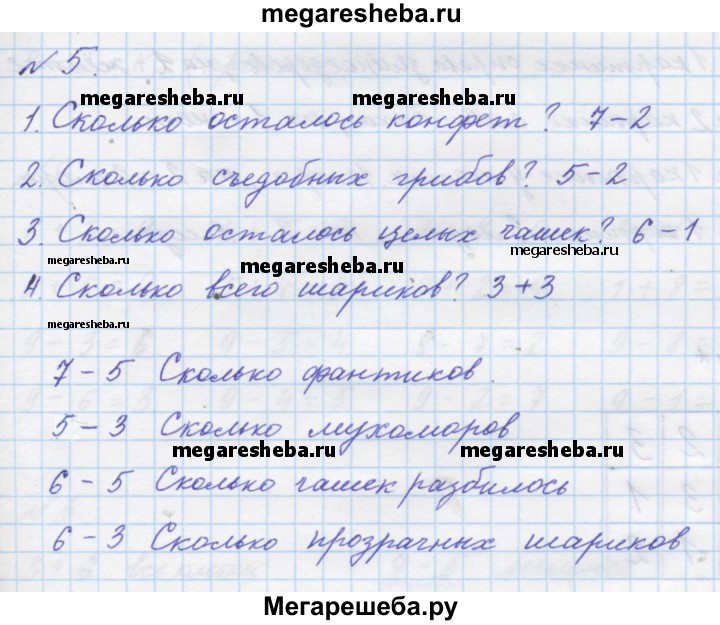 megaresheba.ru
№ 5.
megaresheba.ru megaresheba.ru
1. Сколько осталось конфет? 7-2
2. Сколько съедобных грибов? 5-2
3. Сколько осталось целых чашек? 6-1
megaresheba.ru
megaresheba.ru
4. Сколько всего шариков? 3+3
megaresheba.ru
7-5 Сколько фантиков.
5-3 Сколько мухоморов
megaresheba.ru megaresheba.ru
6-5 Сколько чашек разбилось
6-3 Сколько прозрачных шариков
Мегарешеба.ру